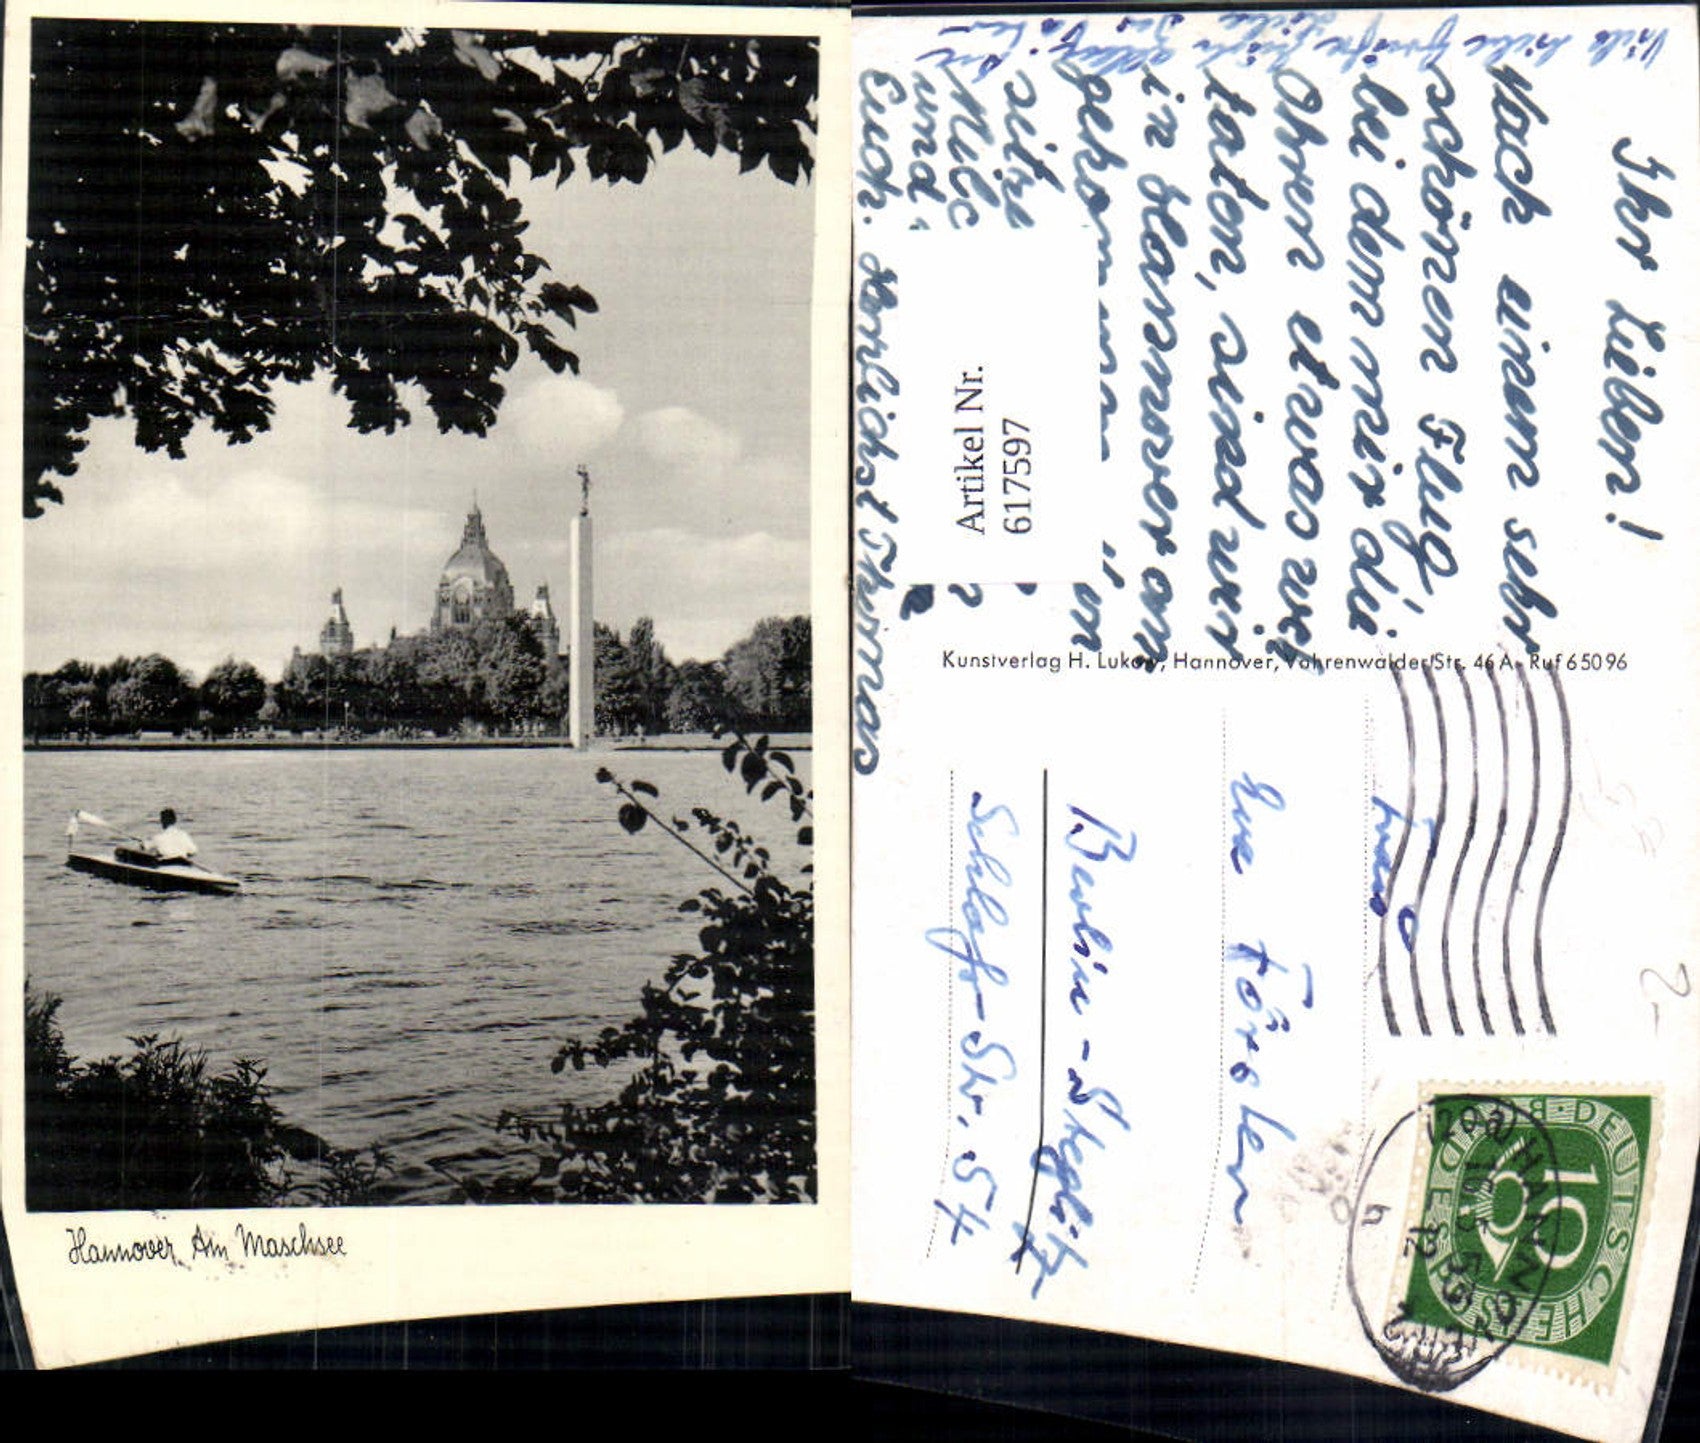 Hannover, Am Maschsee
Viele liebe Grüße
Ihr Lieben!
Nach einem sehr
schönen Flug,
bei dem mir die
Ohren etwas weh
taten, sind wir
in Hannover an
gekommen
sitze
Milc
und
Euch. Herzlichst Thomas
Artikel Nr.
617597
Kunstverlag H. Lukow, Hannover, Vahrenwalder Str. 46 A · Ruf 65096
Frau
Eva Förster
Berlin-Steglitz
Schloß-Str. 54
DEUTSCHE BUNDESPOST
10
(20a) HANNOVER